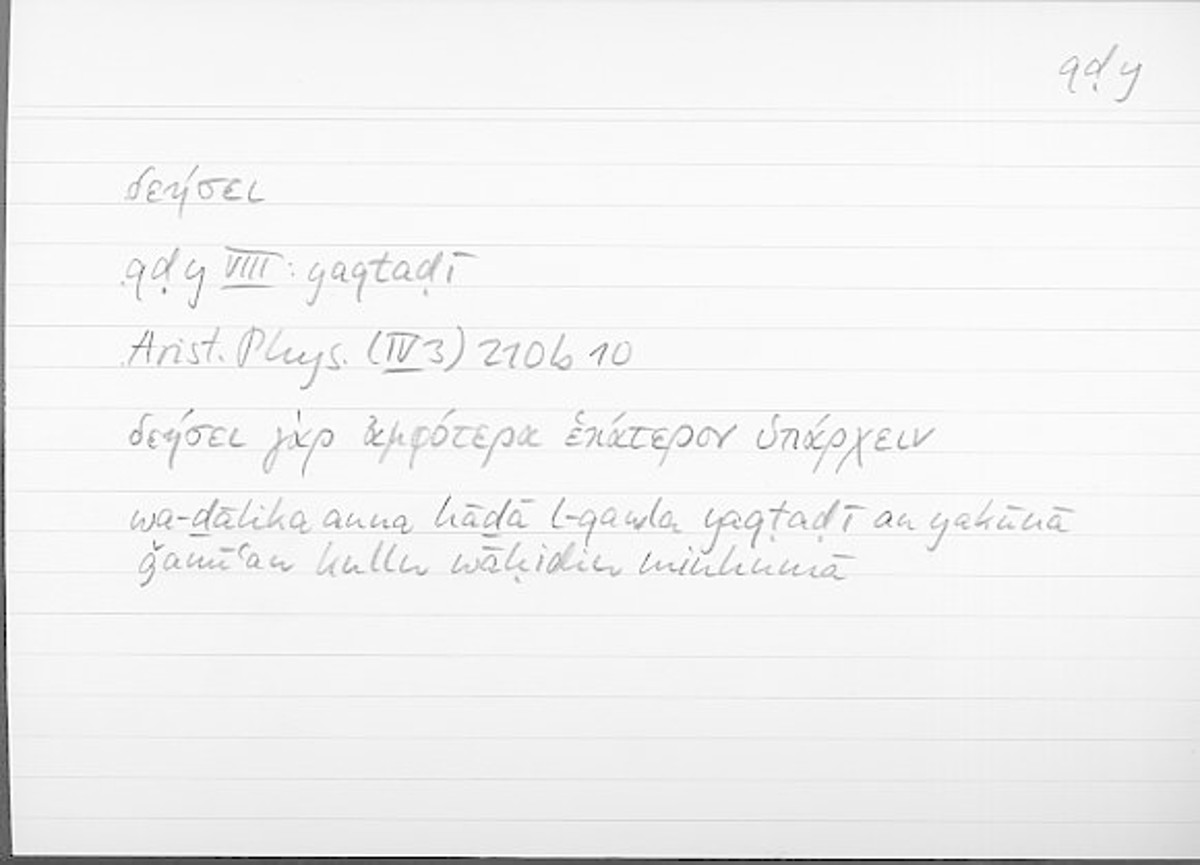 qḍy
δεήσει
qḍy VIII: yaqtaḍī
Arist. Phys. (IV 3) 210b 10
δεήσει γὰρ ἀμφότερα ἑκάτερον ὑπάρχειν
wa-ḏālika anna hāḏā l-qawla yaqtaḍī an yakūnā
ǧamīʿan kullu wāḥidin minhumā